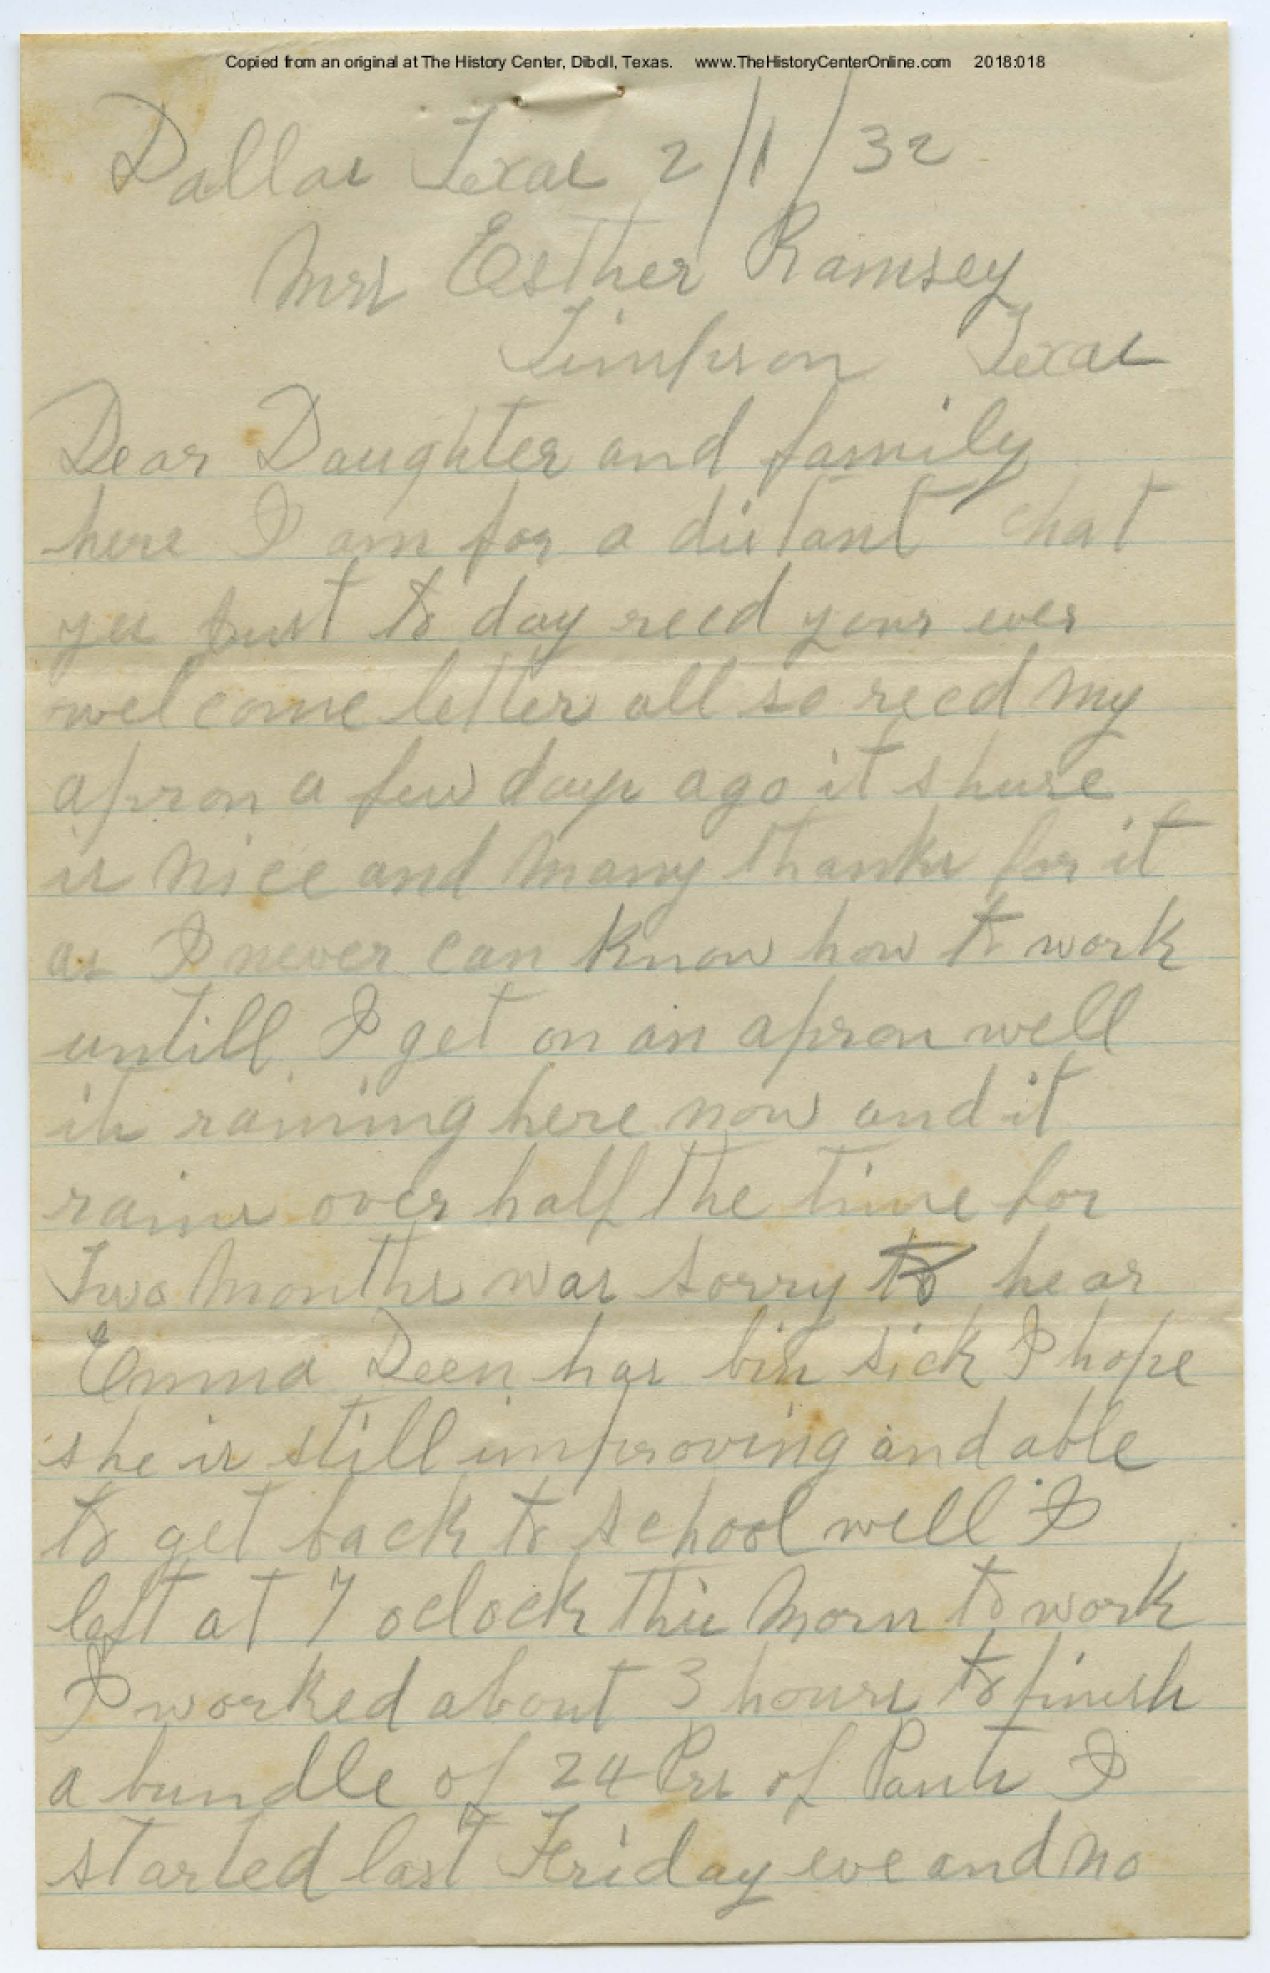 Copied from an original at The History Center, Diboll, Texas. www.TheHistoryCenterOnline.com 2018:018
Dallas Texas 2/1/32
Mrs Esther Ramsey
Timpson Texas
Dear Daughter and family
here I am for a distant chat
yes just to day recd your ever
welcome letter all so recd my
apron a few days ago it shure
is nice and many thanks for it
as I never can know how to work
untill I get on an apron well
its raining here now and it
rains over half the time for
Two months was sorry to hear
Emma Deen has bin sick I hope
she is still improving and able
to get back to school well I
left at 7 oclock this morn to work
I worked about 3 hours to finish
a bundle of 24 Prs of Pants I
started last Friday eve and no